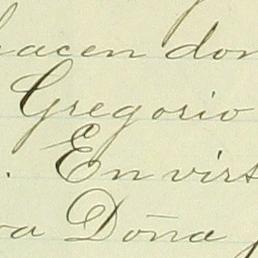 hacen don
Gregorio
. En virt
va Doña